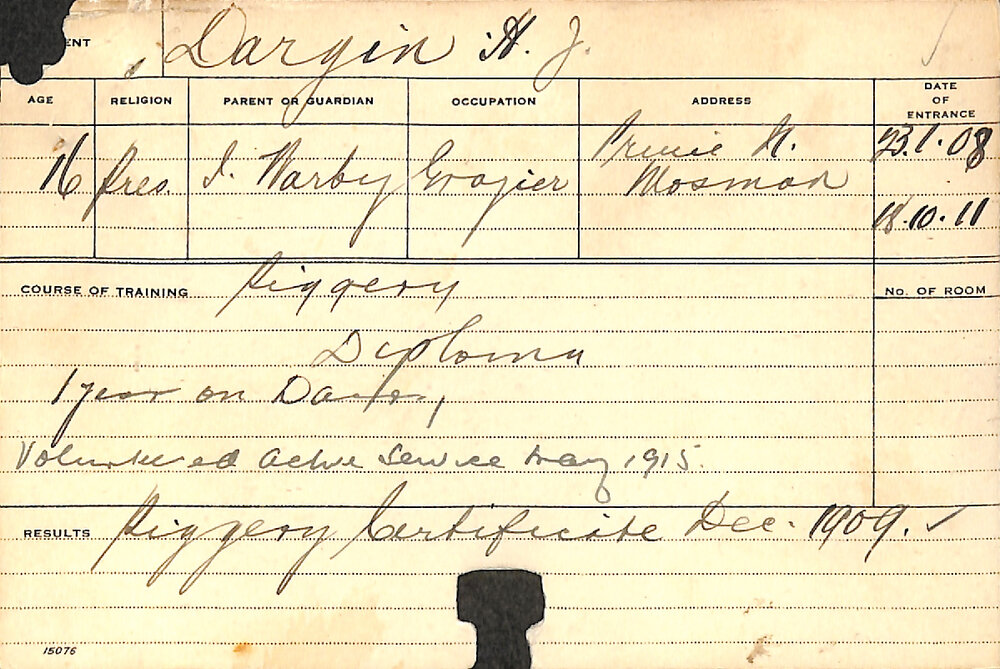 ENT Dargin H. J.
AGE RELIGION PARENT OR GUARDIAN OCCUPATION ADDRESS DATE OF ENTRANCE
16 Pres. J. Warby Grazier 23.1.08
Mosman
18.10.11
COURSE OF TRAINING Piggery
NO. OF ROOM
Diploma
1 year on Dairy,
Volunteered active service May 1915.
RESULTS Piggery Certificate Dec. 1909. ✓
15076